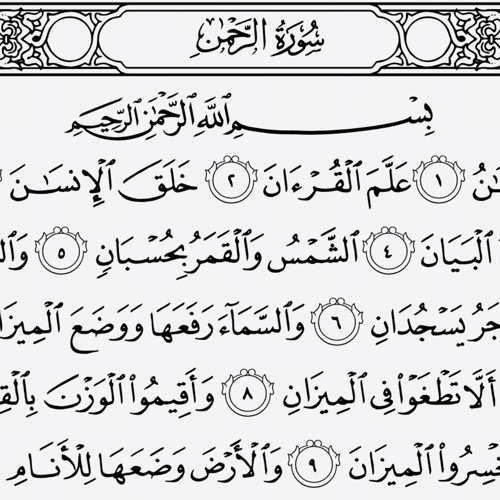 سُورَةُ الرَّحْمَٰن
بِسْمِ ٱللَّهِ ٱلرَّحْمَٰنِ ٱلرَّحِيمِ
ـٰنُ ١ عَلَّمَ ٱلْقُرْءَانَ ٢ خَلَقَ ٱلْإِنسَـٰنَ
ٱلْبَيَانَ ٤ ٱلشَّمْسُ وَٱلْقَمَرُ بِحُسْبَانٍ ٥ وَٱلنـ
ـجَرُ يَسْجُدَانِ ٦ وَٱلسَّمَآءَ رَفَعَهَا وَوَضَعَ ٱلْمِيزَا
أَلَّا تَطْغَوْا۟ فِى ٱلْمِيزَانِ ٨ وَأَقِيمُوا۟ ٱلْوَزْنَ بِٱلْقِـ
ـخْسِرُوا۟ ٱلْمِيزَانَ ٩ وَٱلْأَرْضَ وَضَعَهَا لِلْأَنَامِ